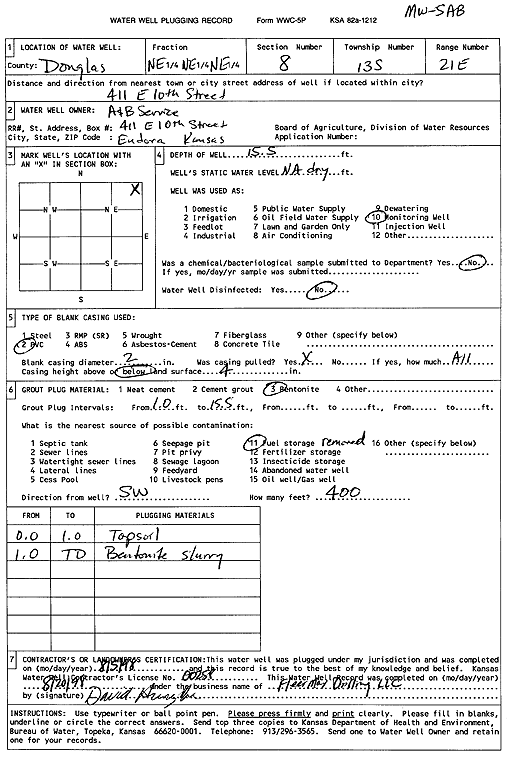 MW-5AB
WATER WELL PLUGGING RECORD Form WWC-5P KSA 82a-1212
1 LOCATION OF WATER WELL: Fraction Section Number Township Number Range Number
County: Douglas NE1/4 NE1/4 NE1/4 8 13S 21E
Distance and direction from nearest town or city street address of well if located within city?
411 E 10th Street
2 WATER WELL OWNER: A&B Service
RR#, St. Address, Box #: 411 E 10th Street Board of Agriculture, Division of Water Resources
City, State, ZIP Code : Eudora Kansas Application Number:
3 MARK WELL'S LOCATION WITH AN "X" IN SECTION BOX:
N
X
N W N E
W E
S W S E
S
4 DEPTH OF WELL.....15.5.....ft.
WELL'S STATIC WATER LEVEL NA dry...ft.
WELL WAS USED AS:
1 Domestic 5 Public Water Supply 9 Dewatering
2 Irrigation 6 Oil Field Water Supply 10 Monitoring Well
3 Feedlot 7 Lawn and Garden Only 11 Injection Well
4 Industrial 8 Air Conditioning 12 Other
Was a chemical/bacteriological sample submitted to Department? Yes...No...
If yes, mo/day/yr sample was submitted
Water Well Disinfected: Yes.....No....
5 TYPE OF BLANK CASING USED:
1 Steel 3 RMP (SR) 5 Wrought 7 Fiberglass 9 Other (specify below)
2 PVC 4 ABS 6 Asbestos-Cement 8 Concrete Tile
Blank casing diameter...2...in. Was casing pulled? Yes X No...... If yes, how much..All
Casing height above or below land surface....4....in.
6 GROUT PLUG MATERIAL: 1 Neat cement 2 Cement grout 3 Bentonite 4 Other
Grout Plug Intervals: From 1.0 ft. to 15.5 ft., From.....ft. to.....ft., From..... to.....ft.
What is the nearest source of possible contamination:
1 Septic tank 6 Seepage pit 11 Fuel storage removed 16 Other (specify below)
2 Sewer lines 7 Pit privy 12 Fertilizer storage
3 Watertight sewer lines 8 Sewage lagoon 13 Insecticide storage
4 Lateral lines 9 Feedyard 14 Abandoned water well
5 Cess Pool 10 Livestock pens 15 Oil well/Gas well
Direction from well? SW How many feet? 400
FROM TO PLUGGING MATERIALS
0.0 1.0 Topsoil
1.0 TD Bentonite Slurry
7 CONTRACTOR'S OR LANDOWNERS CERTIFICATION: This water well was plugged under my jurisdiction and was completed
on (mo/day/year) and this record is true to the best of my knowledge and belief. Kansas
Water Well Contractor's License No. This Water Well Record was completed on (mo/day/
8/20/98 under the business name of Drilling LLC
by (signature) David
INSTRUCTIONS: Use typewriter or ball point pen. Please press firmly and print clearly. Please fill in blanks,
underline or circle the correct answers. Send top three copies to Kansas Department of Health and Environment,
Bureau of Water, Topeka, Kansas 66620-0001. Telephone: 913/296-3565. Send one to Water Well Owner and retain
one for your records.